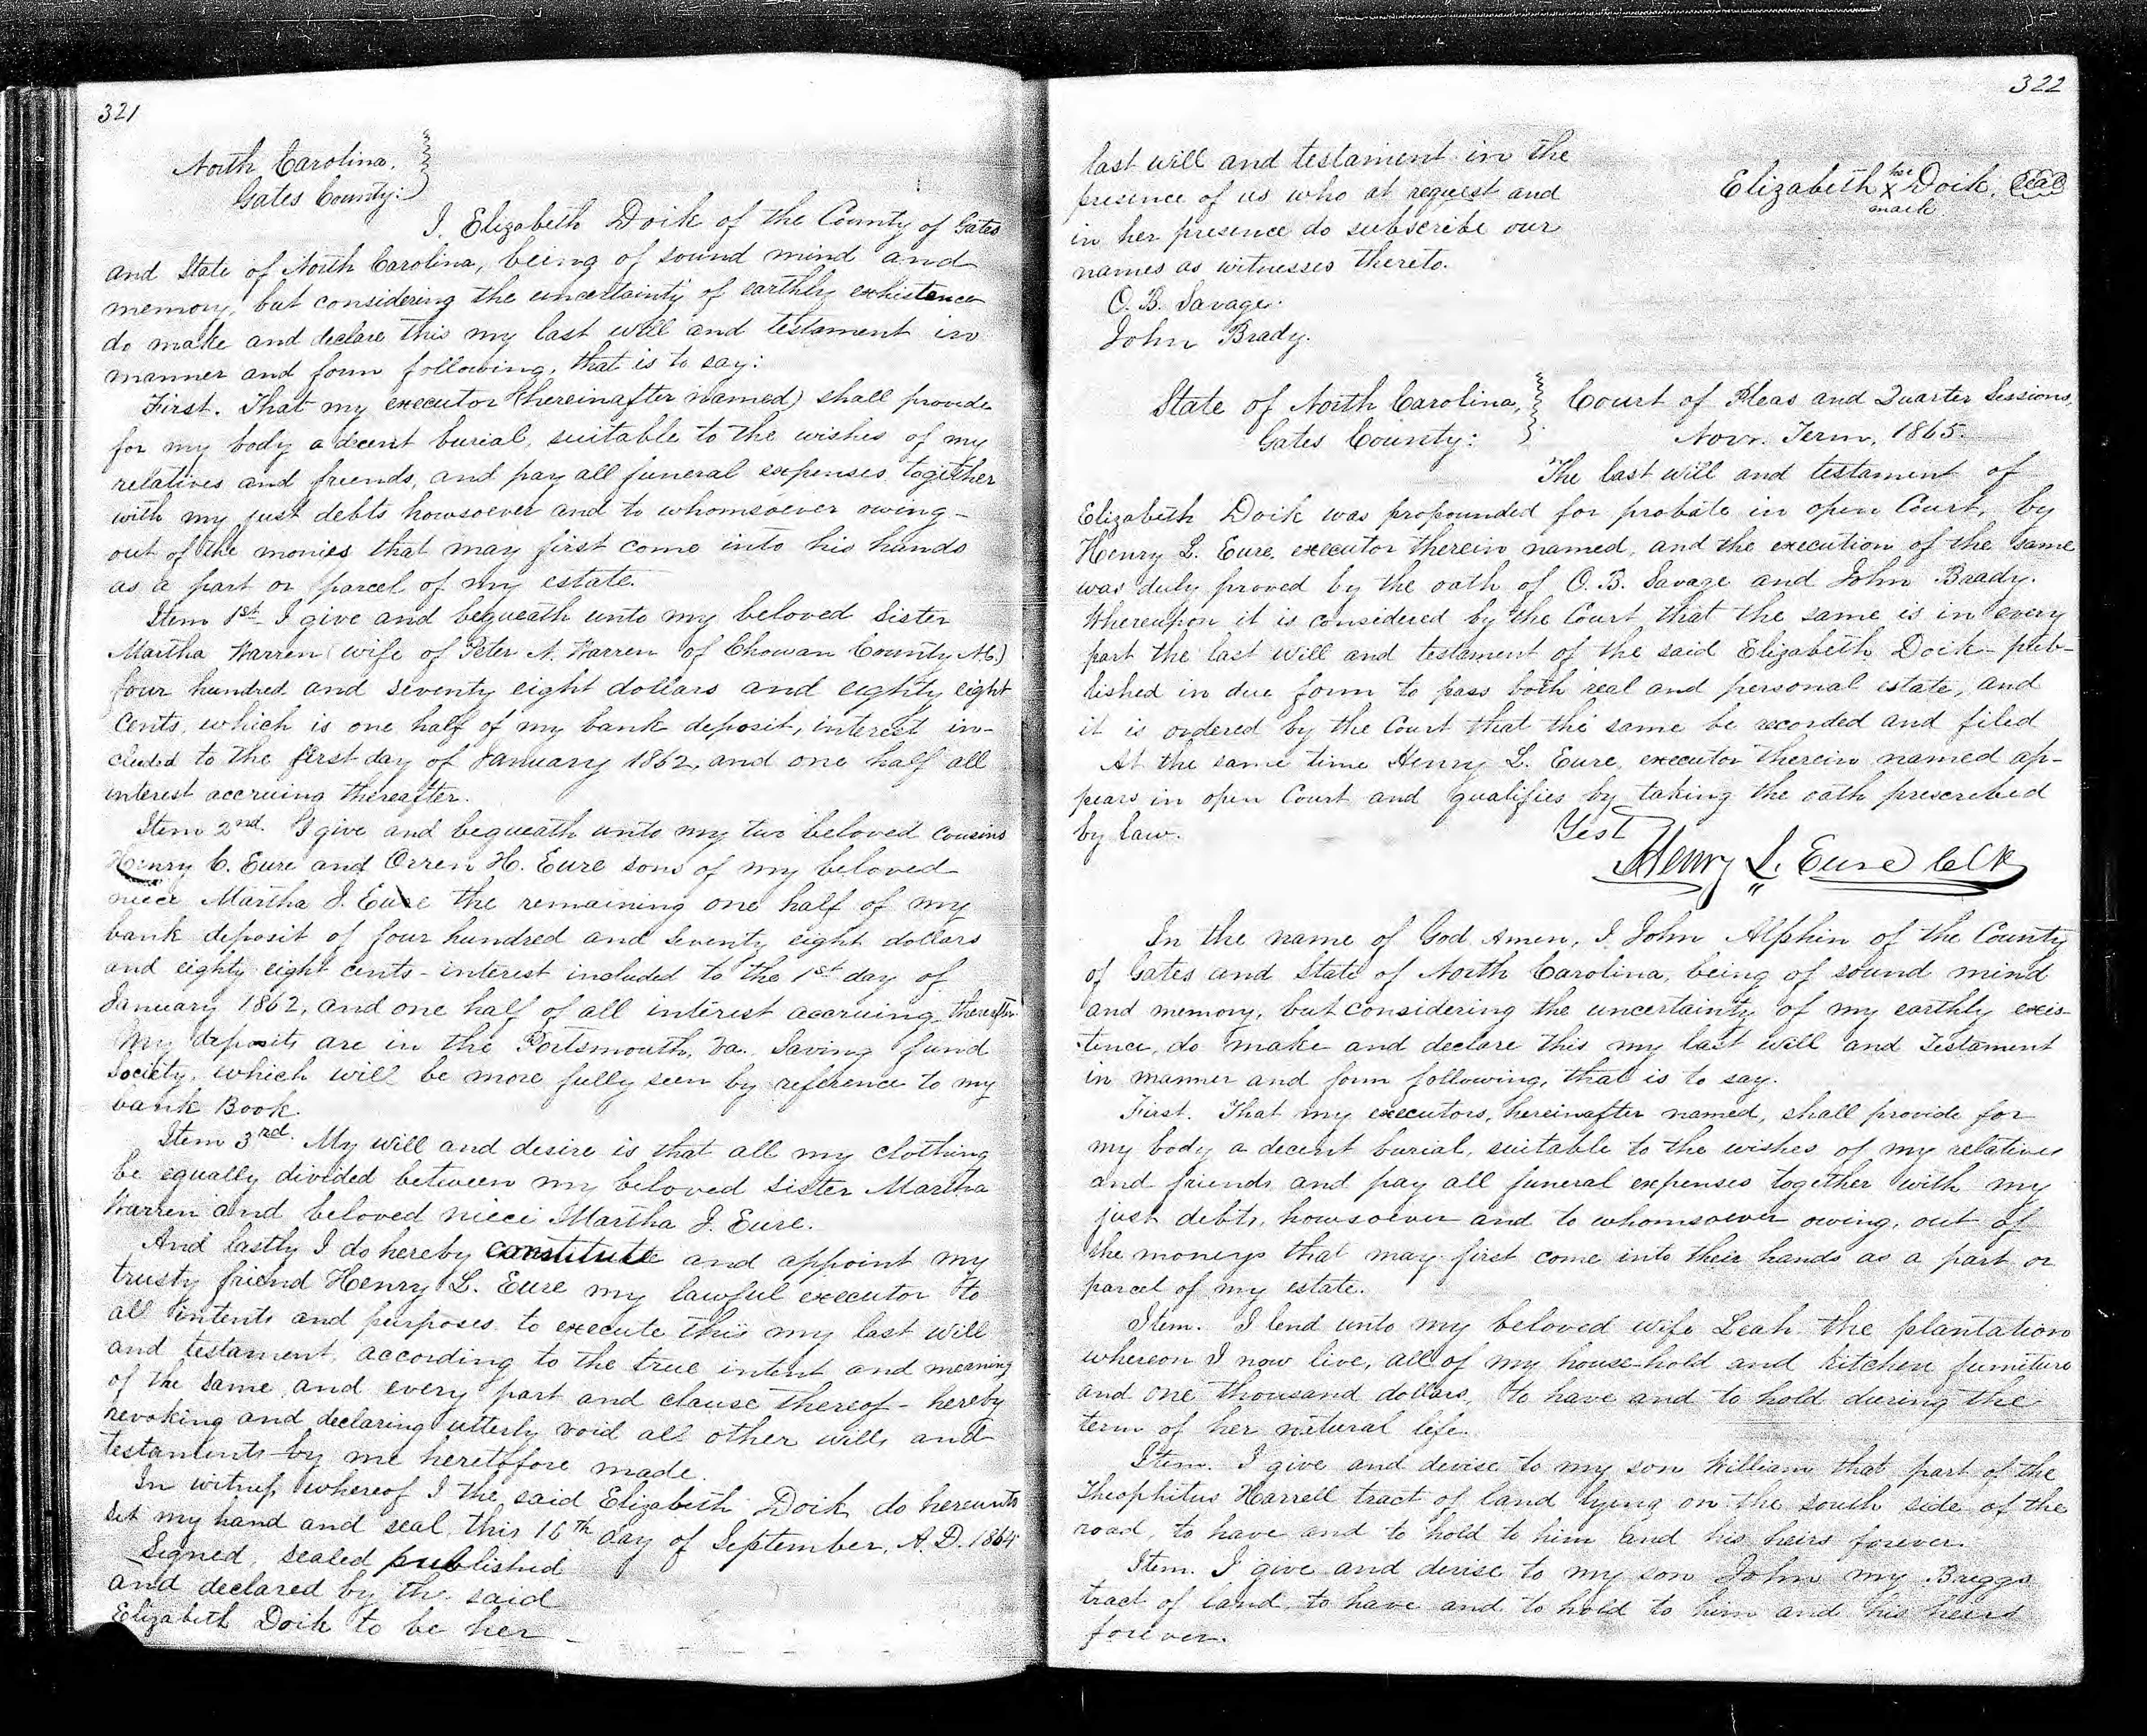 321
North Carolina,
Gates County:
I, Elizabeth Doik of the County of Gates
and State of North Carolina, being of sound mind and
memory, but considering the uncertainty of earthly exhistence
do make and declare this my last will and testament in
manner and form following, that is to say:
First. That my executor (hereinafter named) shall provide
for my body a decent burial, suitable to the wishes of my
relatives and friends, and pay all funeral expenses together
with my just debts howsoever and to whomsoever owing -
out of the monies that may first come into his hands
as a part or parcel of my estate.
Item 1st - I give and bequeath unto my beloved sister
Martha Warren (wife of Peter N. Warren of Chowan County N.C.)
four hundred and seventy eight dollars and eighty eight
cents, which is one half of my bank deposit, interest in-
cluded to the first day of January 1862, and one half all
interest accruing thereafter.
Item 2nd. I give and bequeath unto my two beloved cousins
Henry C. Eure and Orren H. Eure sons of my beloved
niece Martha J. Eure the remaining one half of my
bank deposit of four hundred and seventy eight dollars
and eighty eight cents - interest included to the 1st day of
January 1862, and one half of all interest accruing thereafter
My deposits are in the Portsmouth, Va. Saving fund
society, which will be more fully seen by reference to my
bank Book.
Item 3rd. My will and desire is that all my clothing
be equally divided between my beloved sister Martha
Warren and beloved niece Martha J. Eure.
And lastly I do hereby constitute and appoint my
trusty friend Henry L. Eure my lawful executor to
all intents and purposes to execute this my last will
and testament, according to the true intent and meaning
of the same, and every part and clause thereof - hereby
revoking and declaring utterly void all other wills and
testaments by me heretofore made.
In witness whereof I the said Elizabeth Doik do hereunto
set my hand and seal this 16th day of September, A.D. 1864
Signed, sealed published
and declared by the said
Elizabeth Doik to be her -
322
last will and testament in the
presence of us who at request and
in her presence do subscribe our
names as witnesses thereto.
O. B. Savage.
John Brady.
her
Elizabeth X Doik. Seal
mark
State of North Carolina, Court of Pleas and Quarter Sessions,
Gates County: Novr. Term, 1865.
The last will and testament of
Elizabeth Doik was propounded for probate in open Court, by
Henry L. Eure, executor therein named, and the execution of the same
was duly proved by the oath of O. B. Savage and John Braady.
Whereupon it is considered by the Court that the same is in every
part the last will and testament of the said Elizabeth Doik - pub-
lished in due form to pass both real and personal estate, and
it is ordered by the Court that the same be recorded and filed
At the same time Henry L. Eure, executor therein named ap-
pears in open Court and qualifies by taking the oath prescribed
by law.
Test
Henry L. Eure Clk
In the name of God Amen, I, John Alphin of the County
of Gates and State of North Carolina, being of sound mind
and memory, but considering the uncertainty of my earthly exis-
tence, do make and declare this my last will and Testament
in manner and form following, that is to say.
First. That my executors, hereinafter named, shall provide for
my body a decent burial, suitable to the wishes of my relatives
and friends and pay all funeral expenses together with my
just debts, howsoever and to whomsoever owing, out of
the moneys that may first come into their hands as a part or
parcel of my estate.
Item. I lend unto my beloved wife Leah the plantation
whereon I now live, all of my house-hold and kitchen furniture
and one thousand dollars, to have and to hold during the
term of her natural life.
Item. I give and devise to my son William that part of the
Theophilus Harrell tract of land lying on the south side of the
road, to have and to hold to him and his heirs forever.
Item. I give and devise to my son John my Briggs
tract of land, to have and to hold to him and his heirs
forever.